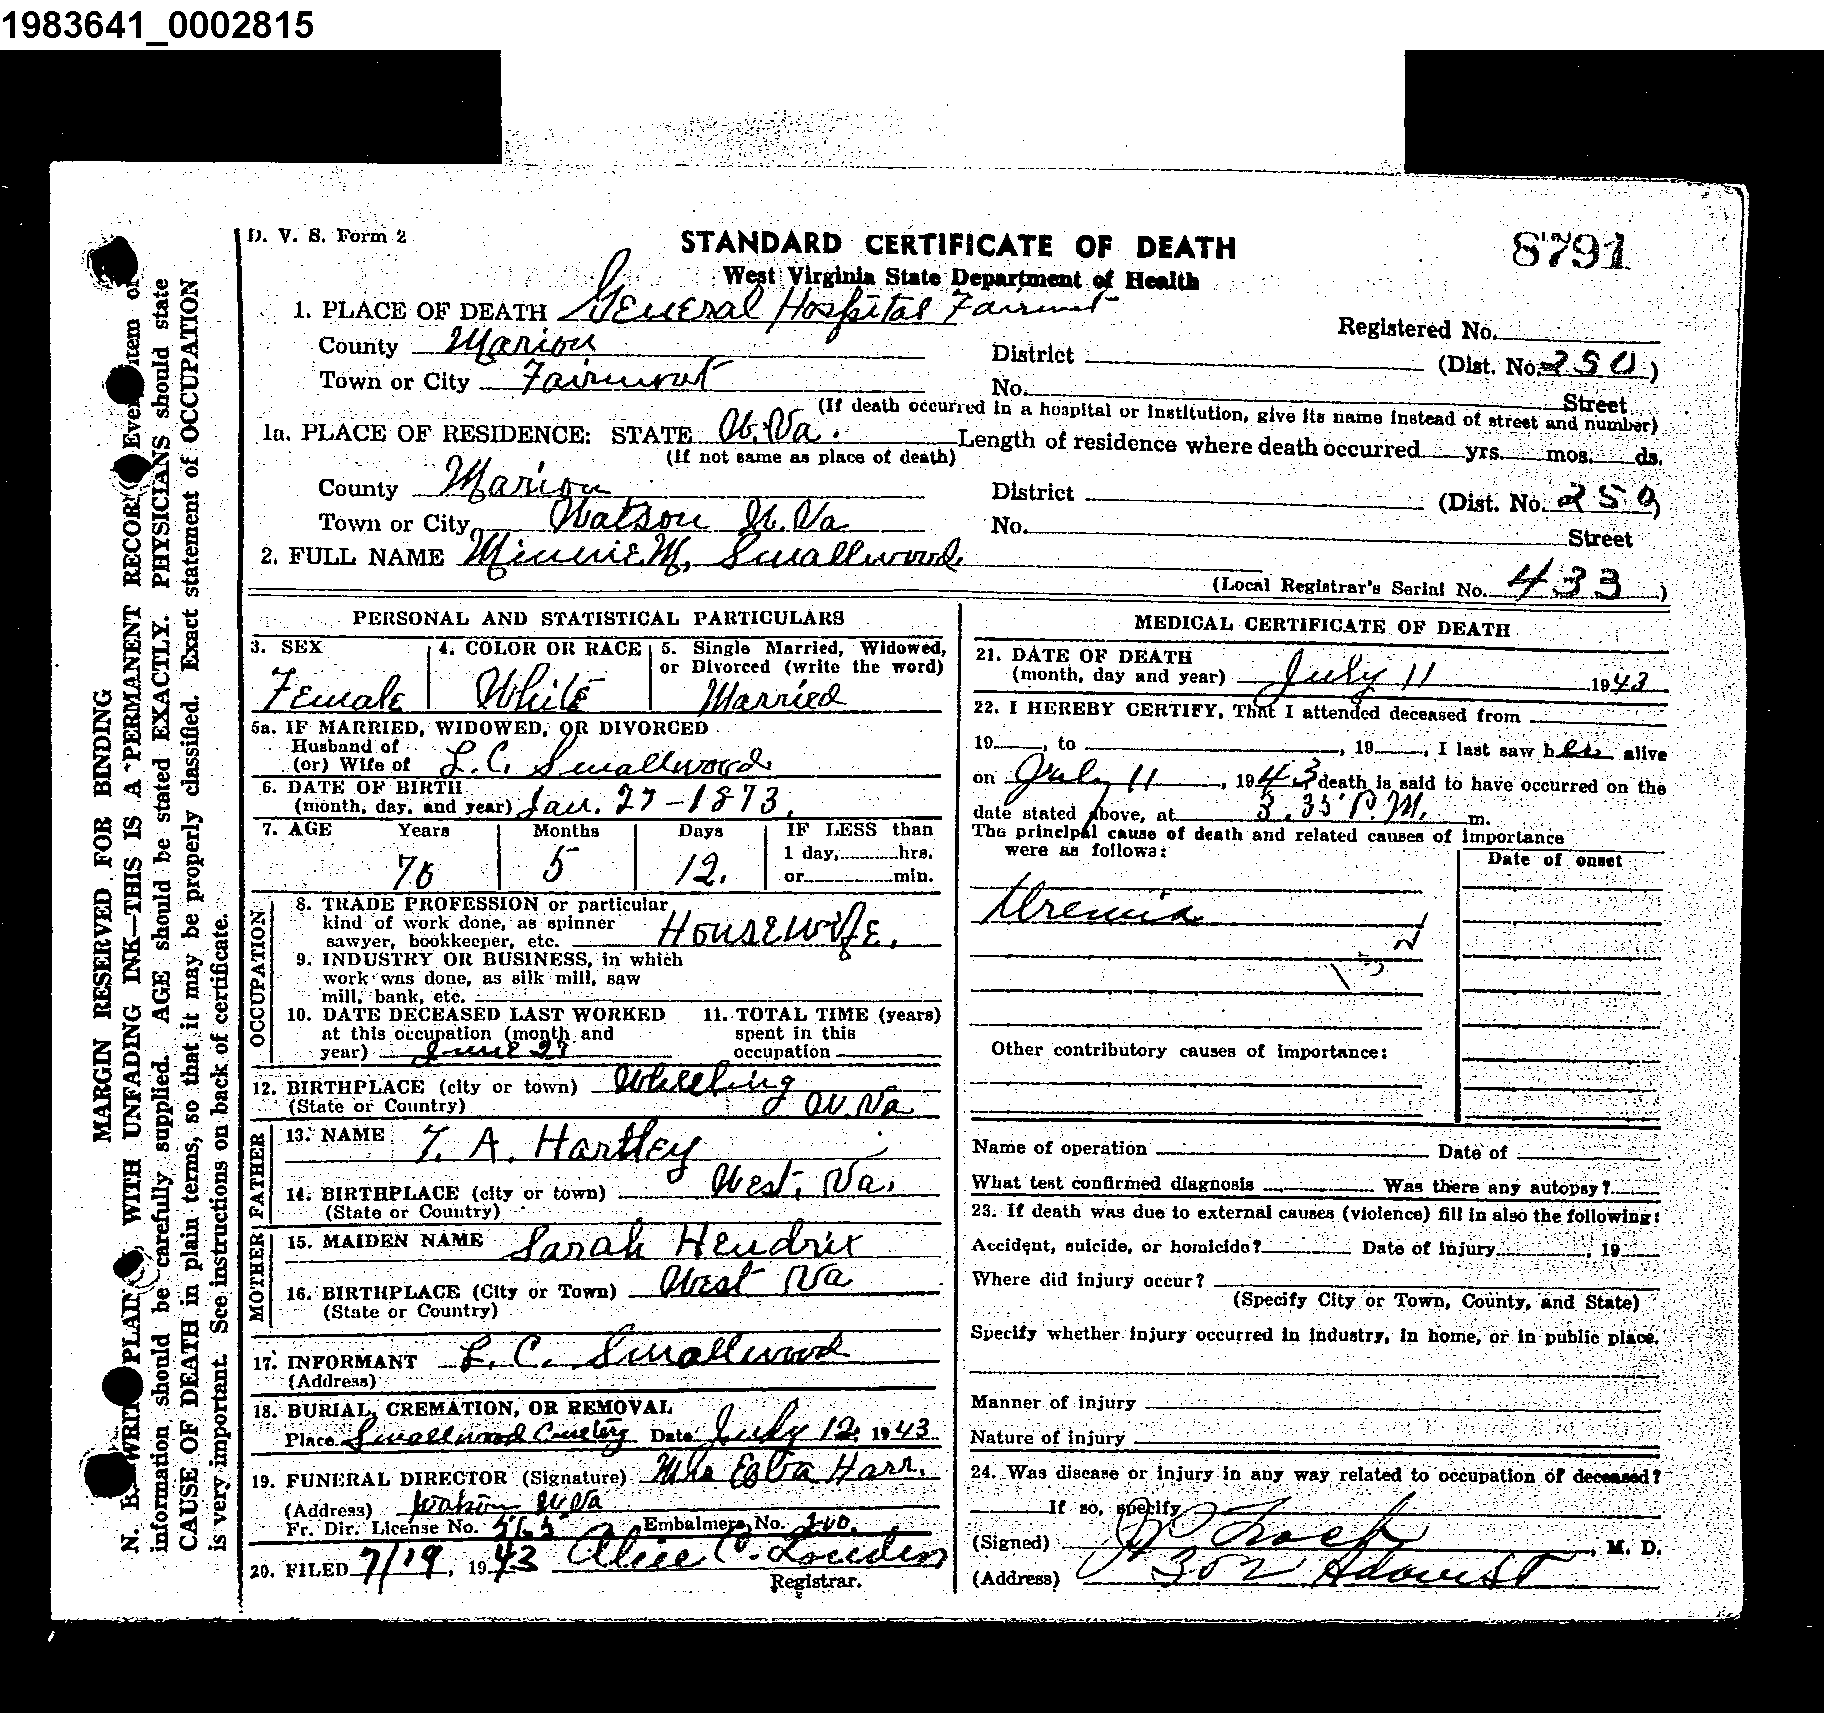 1983641_0002815
D. V. S. Form 2
STANDARD CERTIFICATE OF DEATH
8791
West Virginia State Department of Health
1. PLACE OF DEATH General Hospital Fairmont
Registered No.
County Marion
District (Dist. No. 250)
Town or City Fairmont
No. Street
(If death occurred in a hospital or institution, give its name instead of street and number)
1a. PLACE OF RESIDENCE: STATE W. Va. Length of residence where death occurred yrs. mos. ds.
(If not same as place of death)
County Marion
District (Dist. No. 250)
Town or City Watson W. Va
No. Street
2. FULL NAME Minnie M. Smallwood
(Local Registrar's Serial No. 433)
PERSONAL AND STATISTICAL PARTICULARS
3. SEX
Female
4. COLOR OR RACE
White
5. Single Married, Widowed,
or Divorced (write the word)
Married
5a. IF MARRIED, WIDOWED, OR DIVORCED
Husband of
(or) Wife of L. C. Smallwood
6. DATE OF BIRTH
(month, day, and year) Jan. 27-1873.
7. AGE Years Months Days IF LESS than
1 day, hrs.
70 5 12. or min.
OCCUPATION
8. TRADE PROFESSION or particular
kind of work done, as spinner
sawyer, bookkeeper, etc. Housewife.
9. INDUSTRY OR BUSINESS, in which
work was done, as silk mill, saw
mill, bank, etc.
10. DATE DECEASED LAST WORKED
at this occupation (month and
year) June 27
11. TOTAL TIME (years)
spent in this
occupation
12. BIRTHPLACE (city or town) Wheeling
(State or Country) W. Va
FATHER
13. NAME T. A. Hartley
14. BIRTHPLACE (city or town) West. Va.
(State or Country)
MOTHER
15. MAIDEN NAME Sarah Hendrix
16. BIRTHPLACE (City or Town) West Va
(State or Country)
17. INFORMANT L. C. Smallwood
(Address)
18. BURIAL, CREMATION, OR REMOVAL
Place Smallwood Cemetery Date July 12, 1943
19. FUNERAL DIRECTOR (Signature) Mrs Harr.
(Address) Watson W Va
Fr. Dir. License No. 565 Embalmers No.
20. FILED 7/19, 1943 Alice C. Louden
Registrar.
MEDICAL CERTIFICATE OF DEATH
21. DATE OF DEATH
(month, day and year) July 11 1943
22. I HEREBY CERTIFY, That I attended deceased from
19 , to , 19 , I last saw her alive
on July 11, 1943, death is said to have occurred on the
date stated above, at 3.35 P.M. m.
The principal cause of death and related causes of importance
were as follows:
Date of onset
Uremia
Other contributory causes of importance:
Name of operation Date of
What test confirmed diagnosis Was there any autopsy?
23. If death was due to external causes (violence) fill in also the following:
Accident, suicide, or homicide? Date of injury , 19
Where did injury occur?
(Specify City or Town, County, and State)
Specify whether injury occurred in industry, in home, or in public place.
Manner of injury
Nature of injury
24. Was disease or injury in any way related to occupation of deceased?
If so, specify
(Signed) , M. D.
(Address) 302
MARGIN RESERVED FOR BINDING
N. B. WRITE PLAINLY WITH UNFADING INK—THIS IS A PERMANENT RECORD Every item of
information should be carefully supplied. AGE should be stated EXACTLY. PHYSICIANS should state
CAUSE OF DEATH in plain terms, so that it may be properly classified. Exact statement of OCCUPATION
is very important. See instructions on back of certificate.